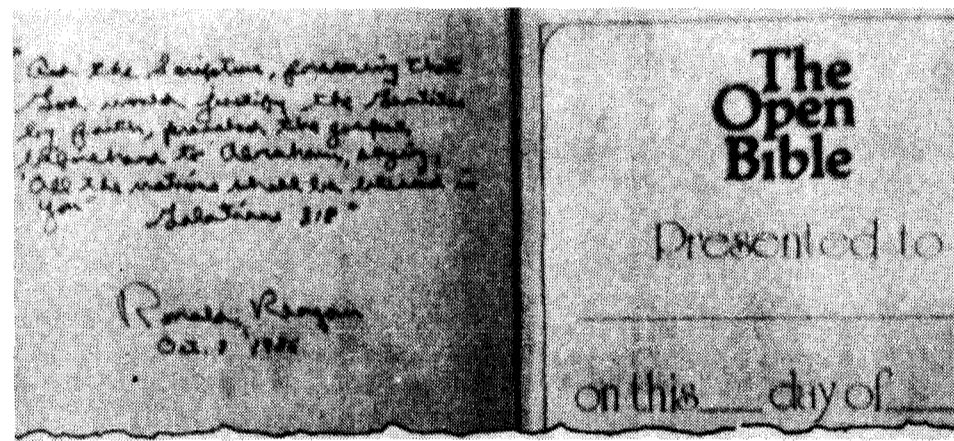 "And the Scripture, foreseeing that
God would justify the Gentiles
by faith, preached the gospel
beforehand to Abraham, saying,
'All the nations shall be blessed in
you' Galatians 3:8"
Ronald Reagan
Oct. 3 1986
The
Open
Bible
Presented to
on this___ day of___